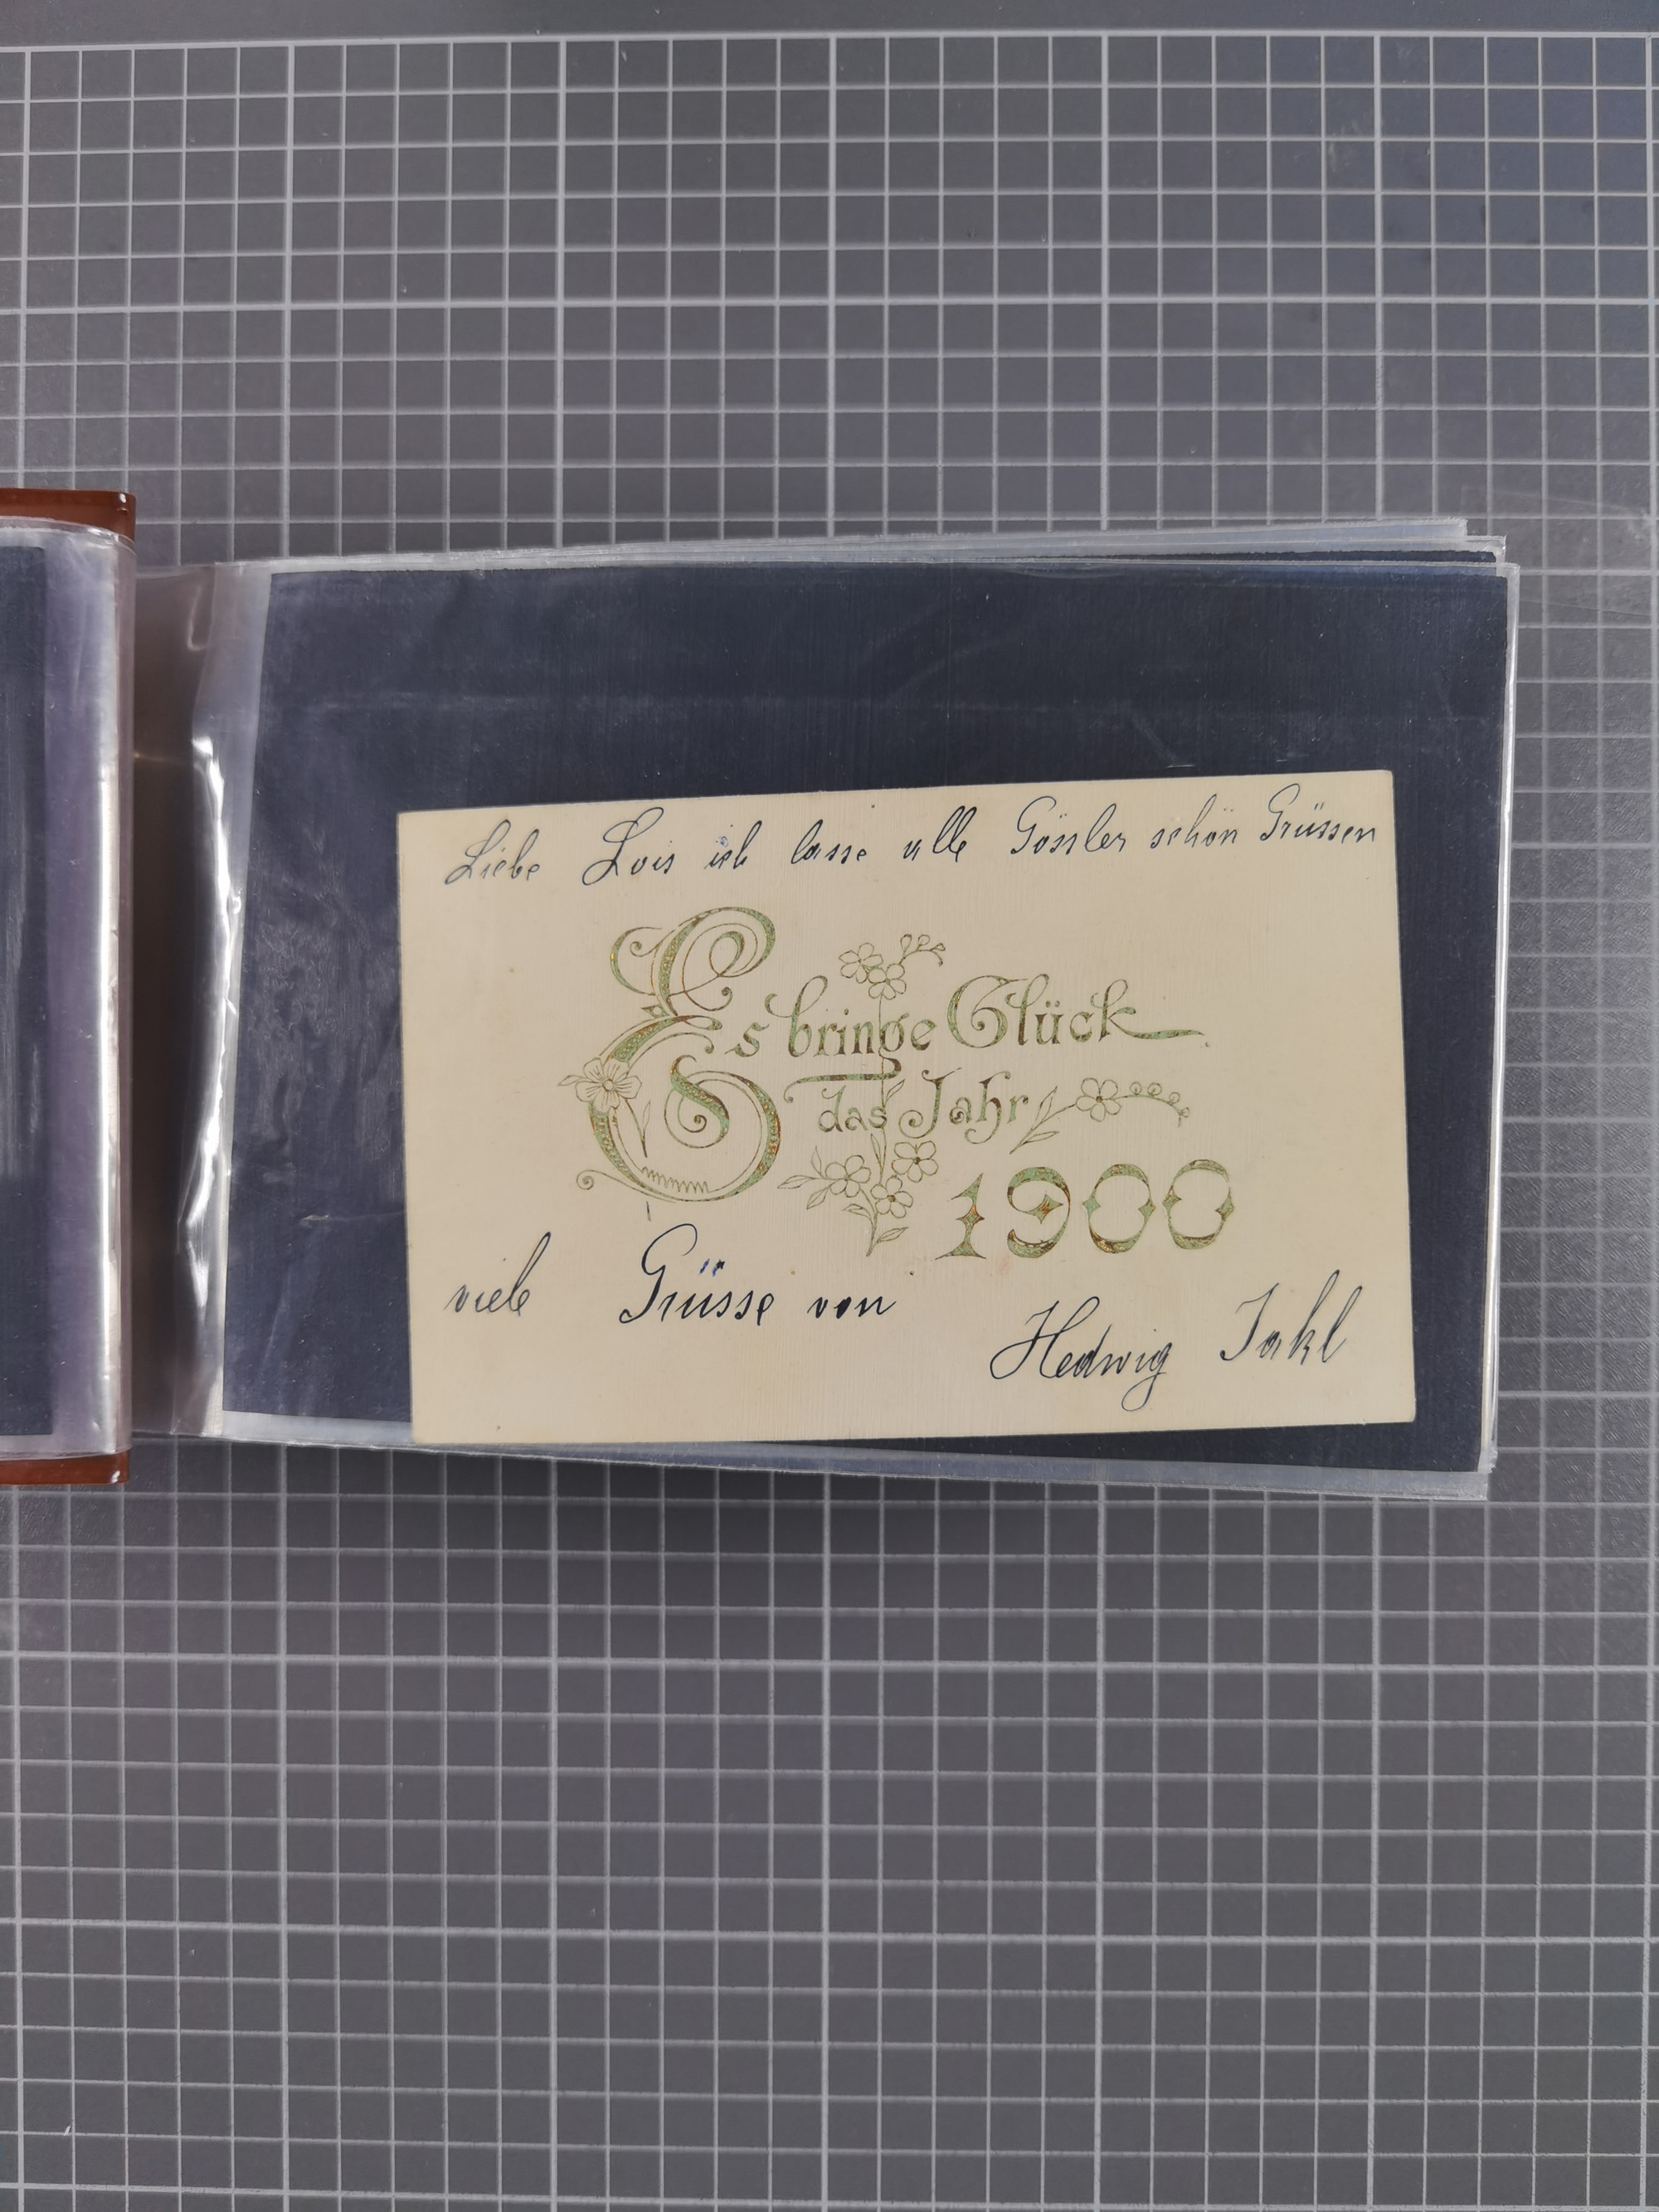 Liebe Lois ich lasse alle Gössler schön Grüssen
Es bringe Glück
das Jahr
1900
viele Grüsse von
Hedwig Jakl